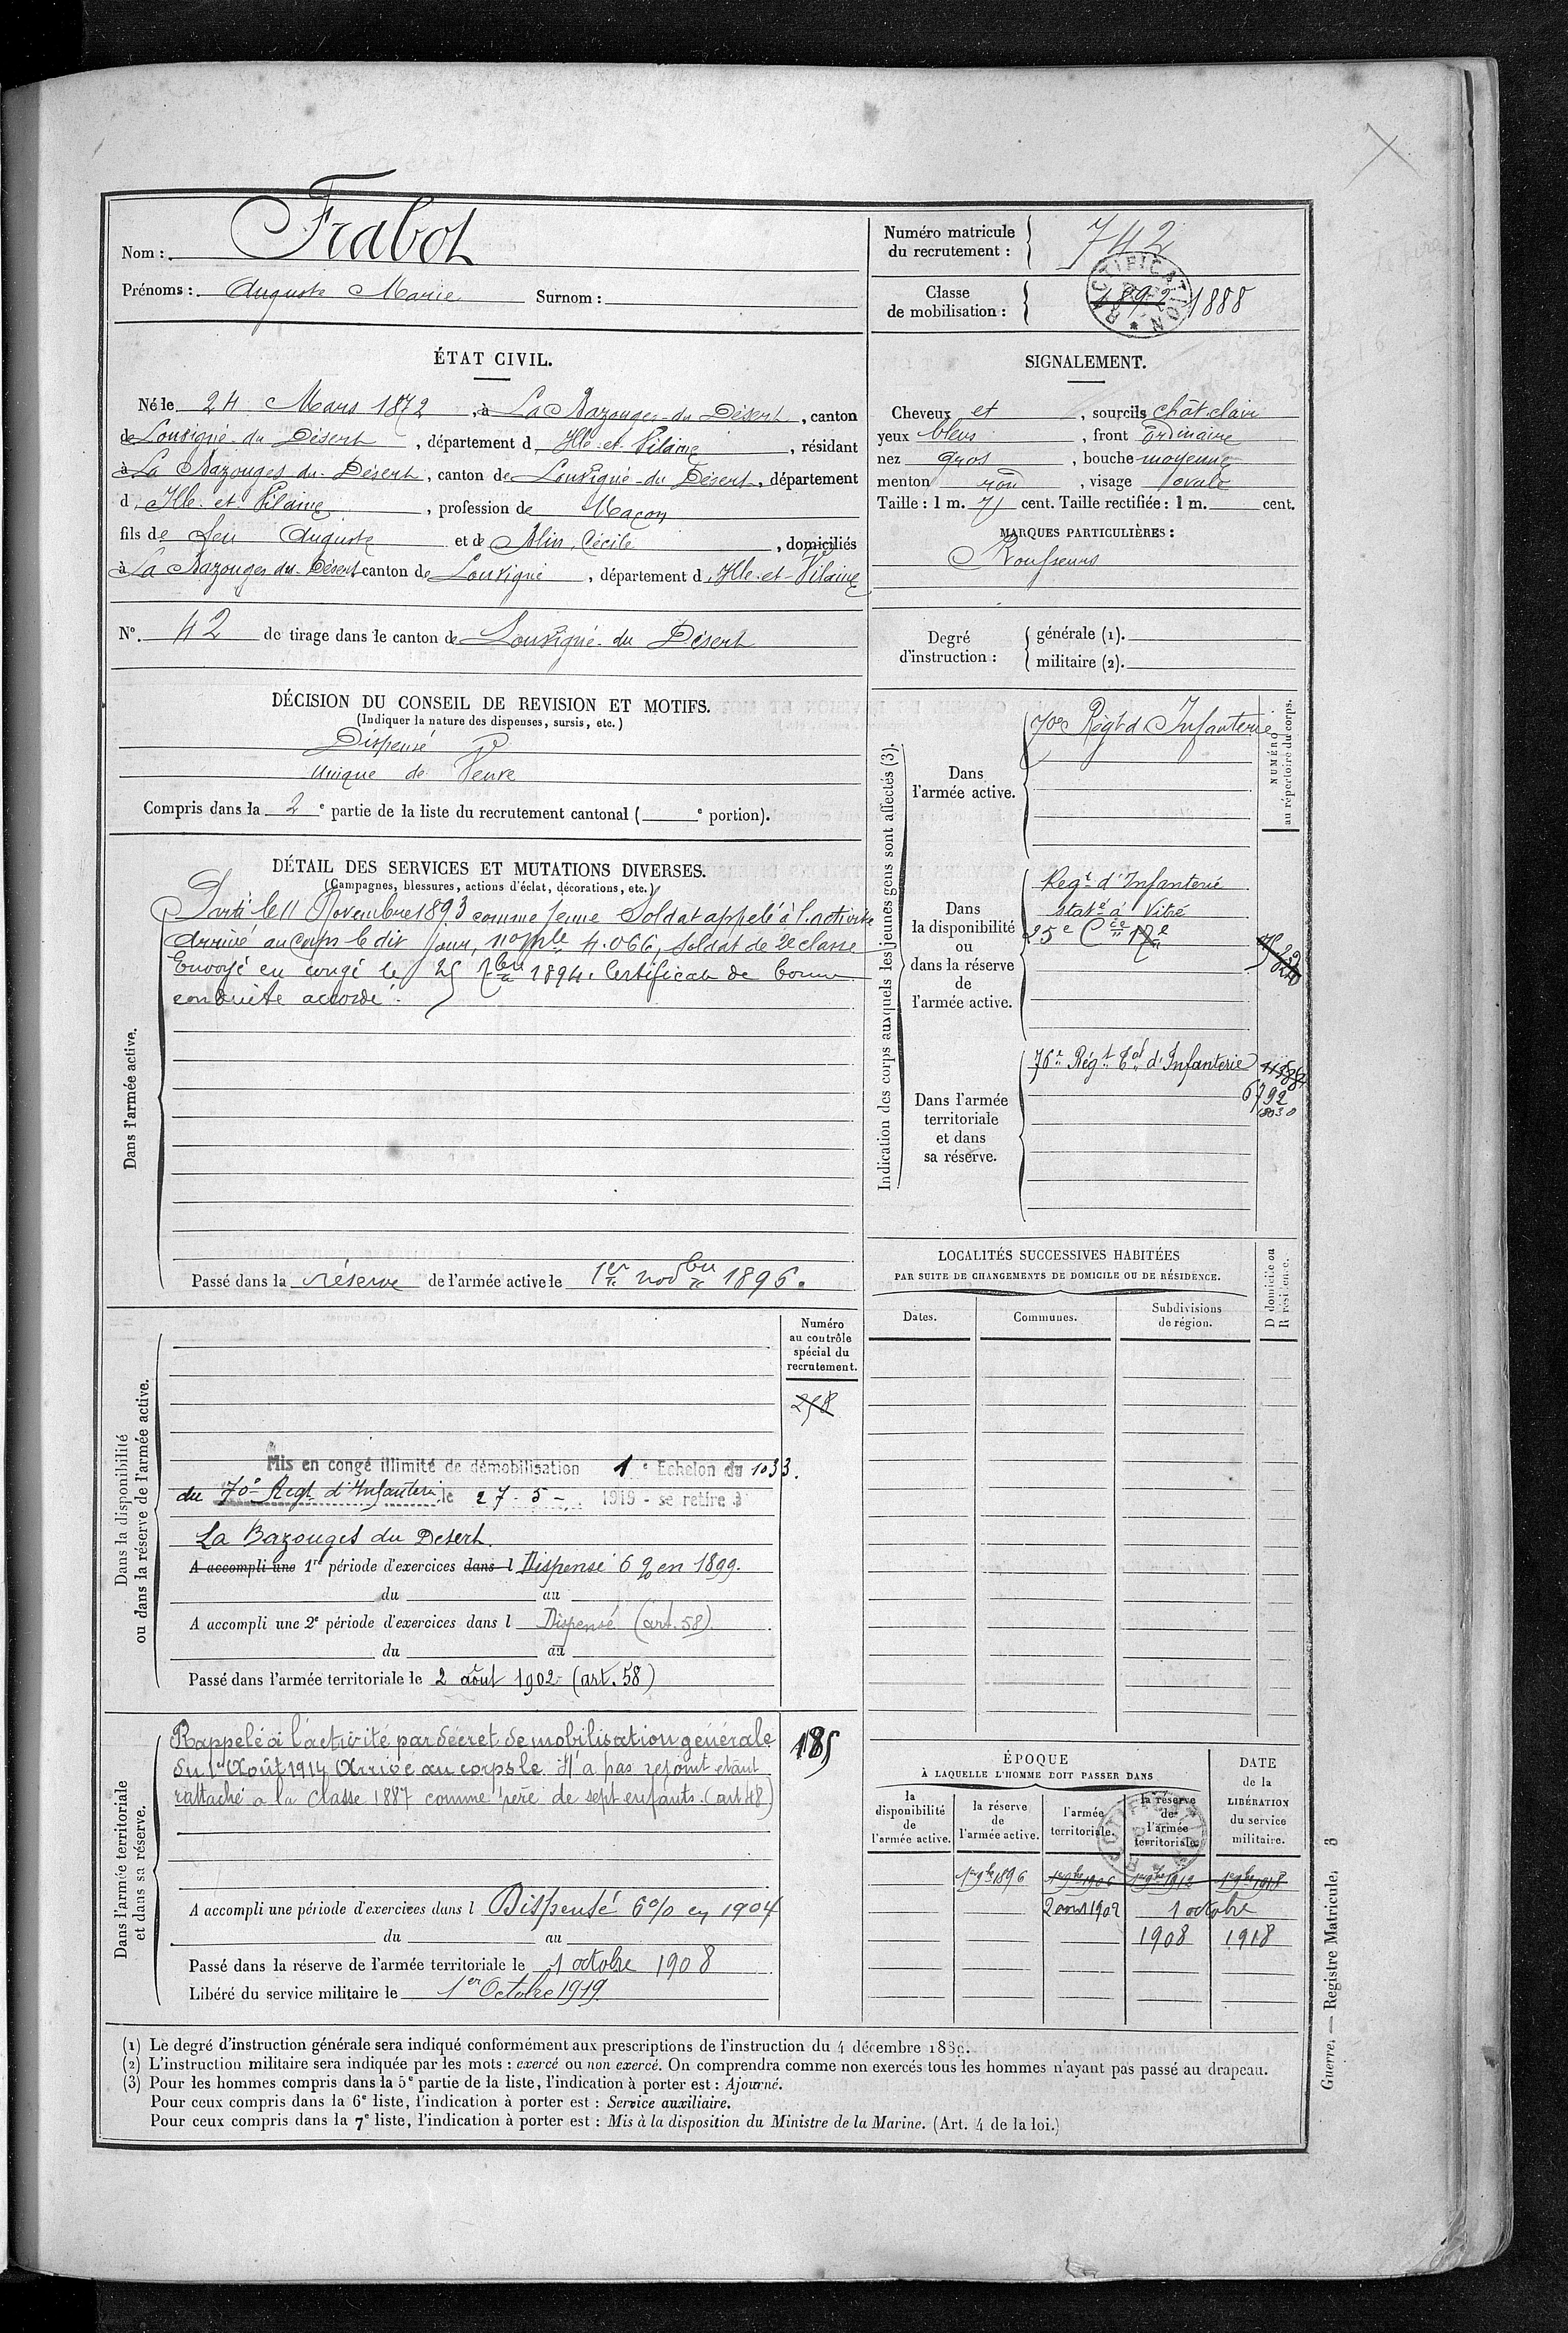 Nom : Frabot
Prénoms : Auguste Marie Surnom :
Numéro matricule du recrutement : 742
Classe de mobilisation : 1892 1888
RECTIFICATION
ÉTAT CIVIL.
Né le 24 Mars 1872, à La Bazouges-du-Désert, canton
de Louvigné-du-Désert, département d Ille-et-Vilaine, résidant
à La Bazouges-du-Désert, canton de Louvigné-du-Désert, département
d Ille-et-Vilaine, profession de Maçon
fils de feu Auguste et de Blin, Cécile, domiciliés
à La Bazouges du Désert canton de Louvigné, département d Ille-et-Vilaine
N° 42 de tirage dans le canton de Louvigné-du-Désert
SIGNALEMENT.
Cheveux et, sourcils chât clair
yeux bleus, front ordinaire
nez gros, bouche moyenne
menton rond, visage ovale
Taille : 1 m. 71 cent. Taille rectifiée : 1 m. cent.
MARQUES PARTICULIÈRES :
Rousseurs
Degré d'instruction :
générale (1).
militaire (2).
DÉCISION DU CONSEIL DE REVISION ET MOTIFS.
(Indiquer la nature des dispenses, sursis, etc.)
Dispensé
Unique de Veuve
Compris dans la 2e partie de la liste du recrutement cantonal ( e portion).
DÉTAIL DES SERVICES ET MUTATIONS DIVERSES.
(Campagnes, blessures, actions d'éclat, décorations, etc.)
Dans l'armée active.
Parti le 11 Novembre 1893 comme jeune Soldat appelé à l'activité
Arrivé au Corps le dit jour, no mle 4.066, Soldat de 2e classe
Envoyé en congé le 25 7bre 1894. Certificat de bonne
conduite accordé.
Passé dans la réserve de l'armée active le 1er novbre 1896.
Indication des corps auxquels les jeunes gens sont affectés (3).
NUMÉRO au répertoire du corps.
Dans l'armée active.
70e Régt d'Infanterie
Dans la disponibilité ou dans la réserve de l'armée active.
Régt d'Infanterie
staté à Vitré
25e Cie
Dans l'armée territoriale et dans sa réserve.
76e Régt Tal d'Infanterie
6792
18030
LOCALITÉS SUCCESSIVES HABITÉES
PAR SUITE DE CHANGEMENTS DE DOMICILE OU DE RÉSIDENCE.
Dates. Communes. Subdivisions de région. D domicile ou R résidence.
Dans la disponibilité ou dans la réserve de l'armée active.
Numéro au contrôle spécial du recrutement.
258
Mis en congé illimité de démobilisation 1e Echelon du 1033.
du 70e Regt d'Infanterie le 27-5-1919 - se retire à
La Bazouges du Desert.
A accompli une 1re période d'exercices dans l Dispensé 6 % en 1899.
du au
A accompli une 2e période d'exercices dans l Dispensé (art. 58).
du au
Passé dans l'armée territoriale le 2 août 1902 (art. 58)
Dans l'armée territoriale et dans sa réserve.
185
Rappelé à l'activité par décret de mobilisation générale
du 1er Août 1914 Arrivé au corps le. N'a pas rejoint étant
rattaché à la Classe 1887 comme père de sept enfants. (art 48)
A accompli une période d'exercices dans l Dispensé 6% en 1904
du au
Passé dans la réserve de l'armée territoriale le 1 octobre 1908
Libéré du service militaire le 1er Octobre 1919
ÉPOQUE
À LAQUELLE L'HOMME DOIT PASSER DANS
la disponibilité de l'armée active.
la réserve de l'armée active.
l'armée territoriale.
la réserve de l'armée territoriale.
DATE de la LIBÉRATION du service militaire.
1er 9bre 1896 1er 9bre 1906 1er 9bre 1912 1er 9bre 1918
2 août 1902 1 octobre
1908 1918
(1) Le degré d'instruction générale sera indiqué conformément aux prescriptions de l'instruction du 4 décembre 1889.
(2) L'instruction militaire sera indiquée par les mots : exercé ou non exercé. On comprendra comme non exercés tous les hommes n'ayant pas passé au drapeau.
(3) Pour les hommes compris dans la 5e partie de la liste, l'indication à porter est : Ajourné.
Pour ceux compris dans la 6e liste, l'indication à porter est : Service auxiliaire.
Pour ceux compris dans la 7e liste, l'indication à porter est : Mis à la disposition du Ministre de la Marine. (Art. 4 de la loi.)
Guerre. — Registre Matricule. 3